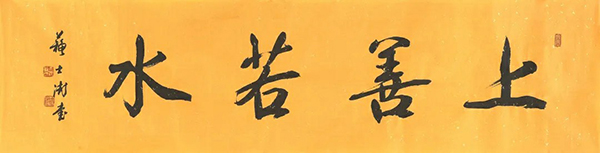 上善若水
蘇士澍書